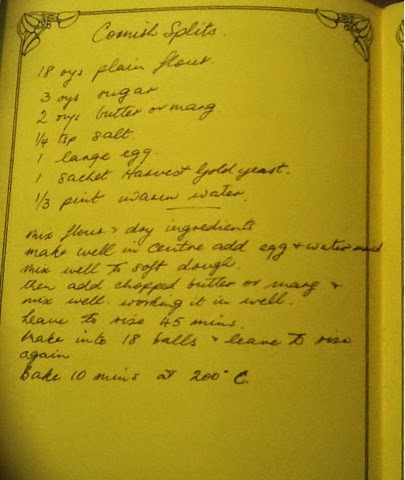 Cornish Splits.
18 ozs plain flour.
3 ozs sugar
2 ozs butter or marg.
1/4 tsp salt.
1 large egg.
1 sachet Harvest Gold yeast.
1/3 pint warm water.
Mix flour & dry ingredients
make well in centre add egg & water
mix well to soft dough.
then add chopped butter or marg &
mix well working it in well.
Leave to rise 45 mins.
Make into 18 balls & leave to rise
again
Bake 10 mins at 200° C.